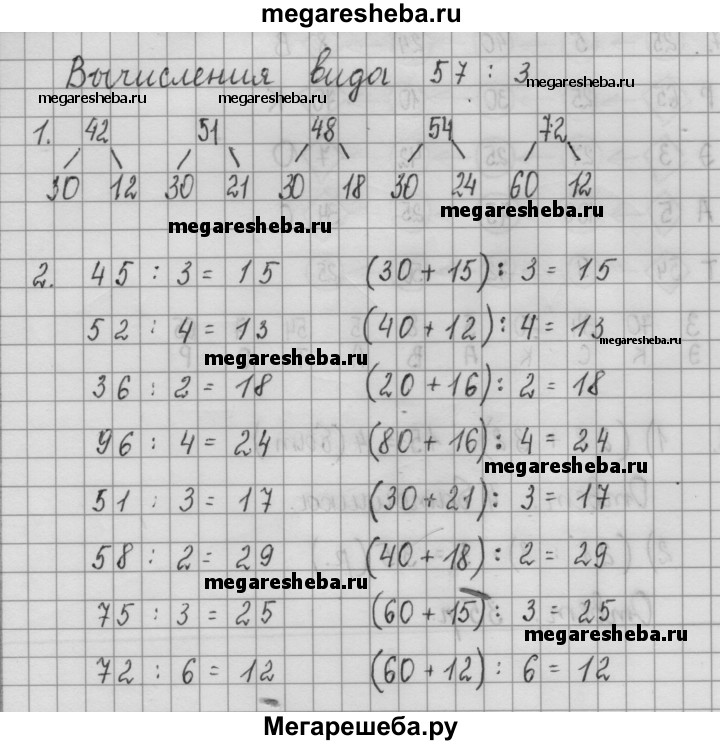 megaresheba.ru
Вычисления вида 57 : 3
megaresheba.ru megaresheba.ru megaresheba.ru
1. 42 51 48 54 72
30 12 30 21 30 18 30 24 60 12
megaresheba.ru megaresheba.ru
2. 45 : 3 = 15 (30 + 15) : 3 = 15
52 : 4 = 13 (40 + 12) : 4 = 13
megaresheba.ru megaresheba.ru
36 : 2 = 18 (20 + 16) : 2 = 18
96 : 4 = 24 (80 + 16) : 4 = 24
megaresheba.ru
51 : 3 = 17 (30 + 21) : 3 = 17
58 : 2 = 29 (40 + 18) : 2 = 29
megaresheba.ru
75 : 3 = 25 (60 + 15) : 3 = 25
megaresheba.ru
72 : 6 = 12 (60 + 12) : 6 = 12
Мегарешеба.ру